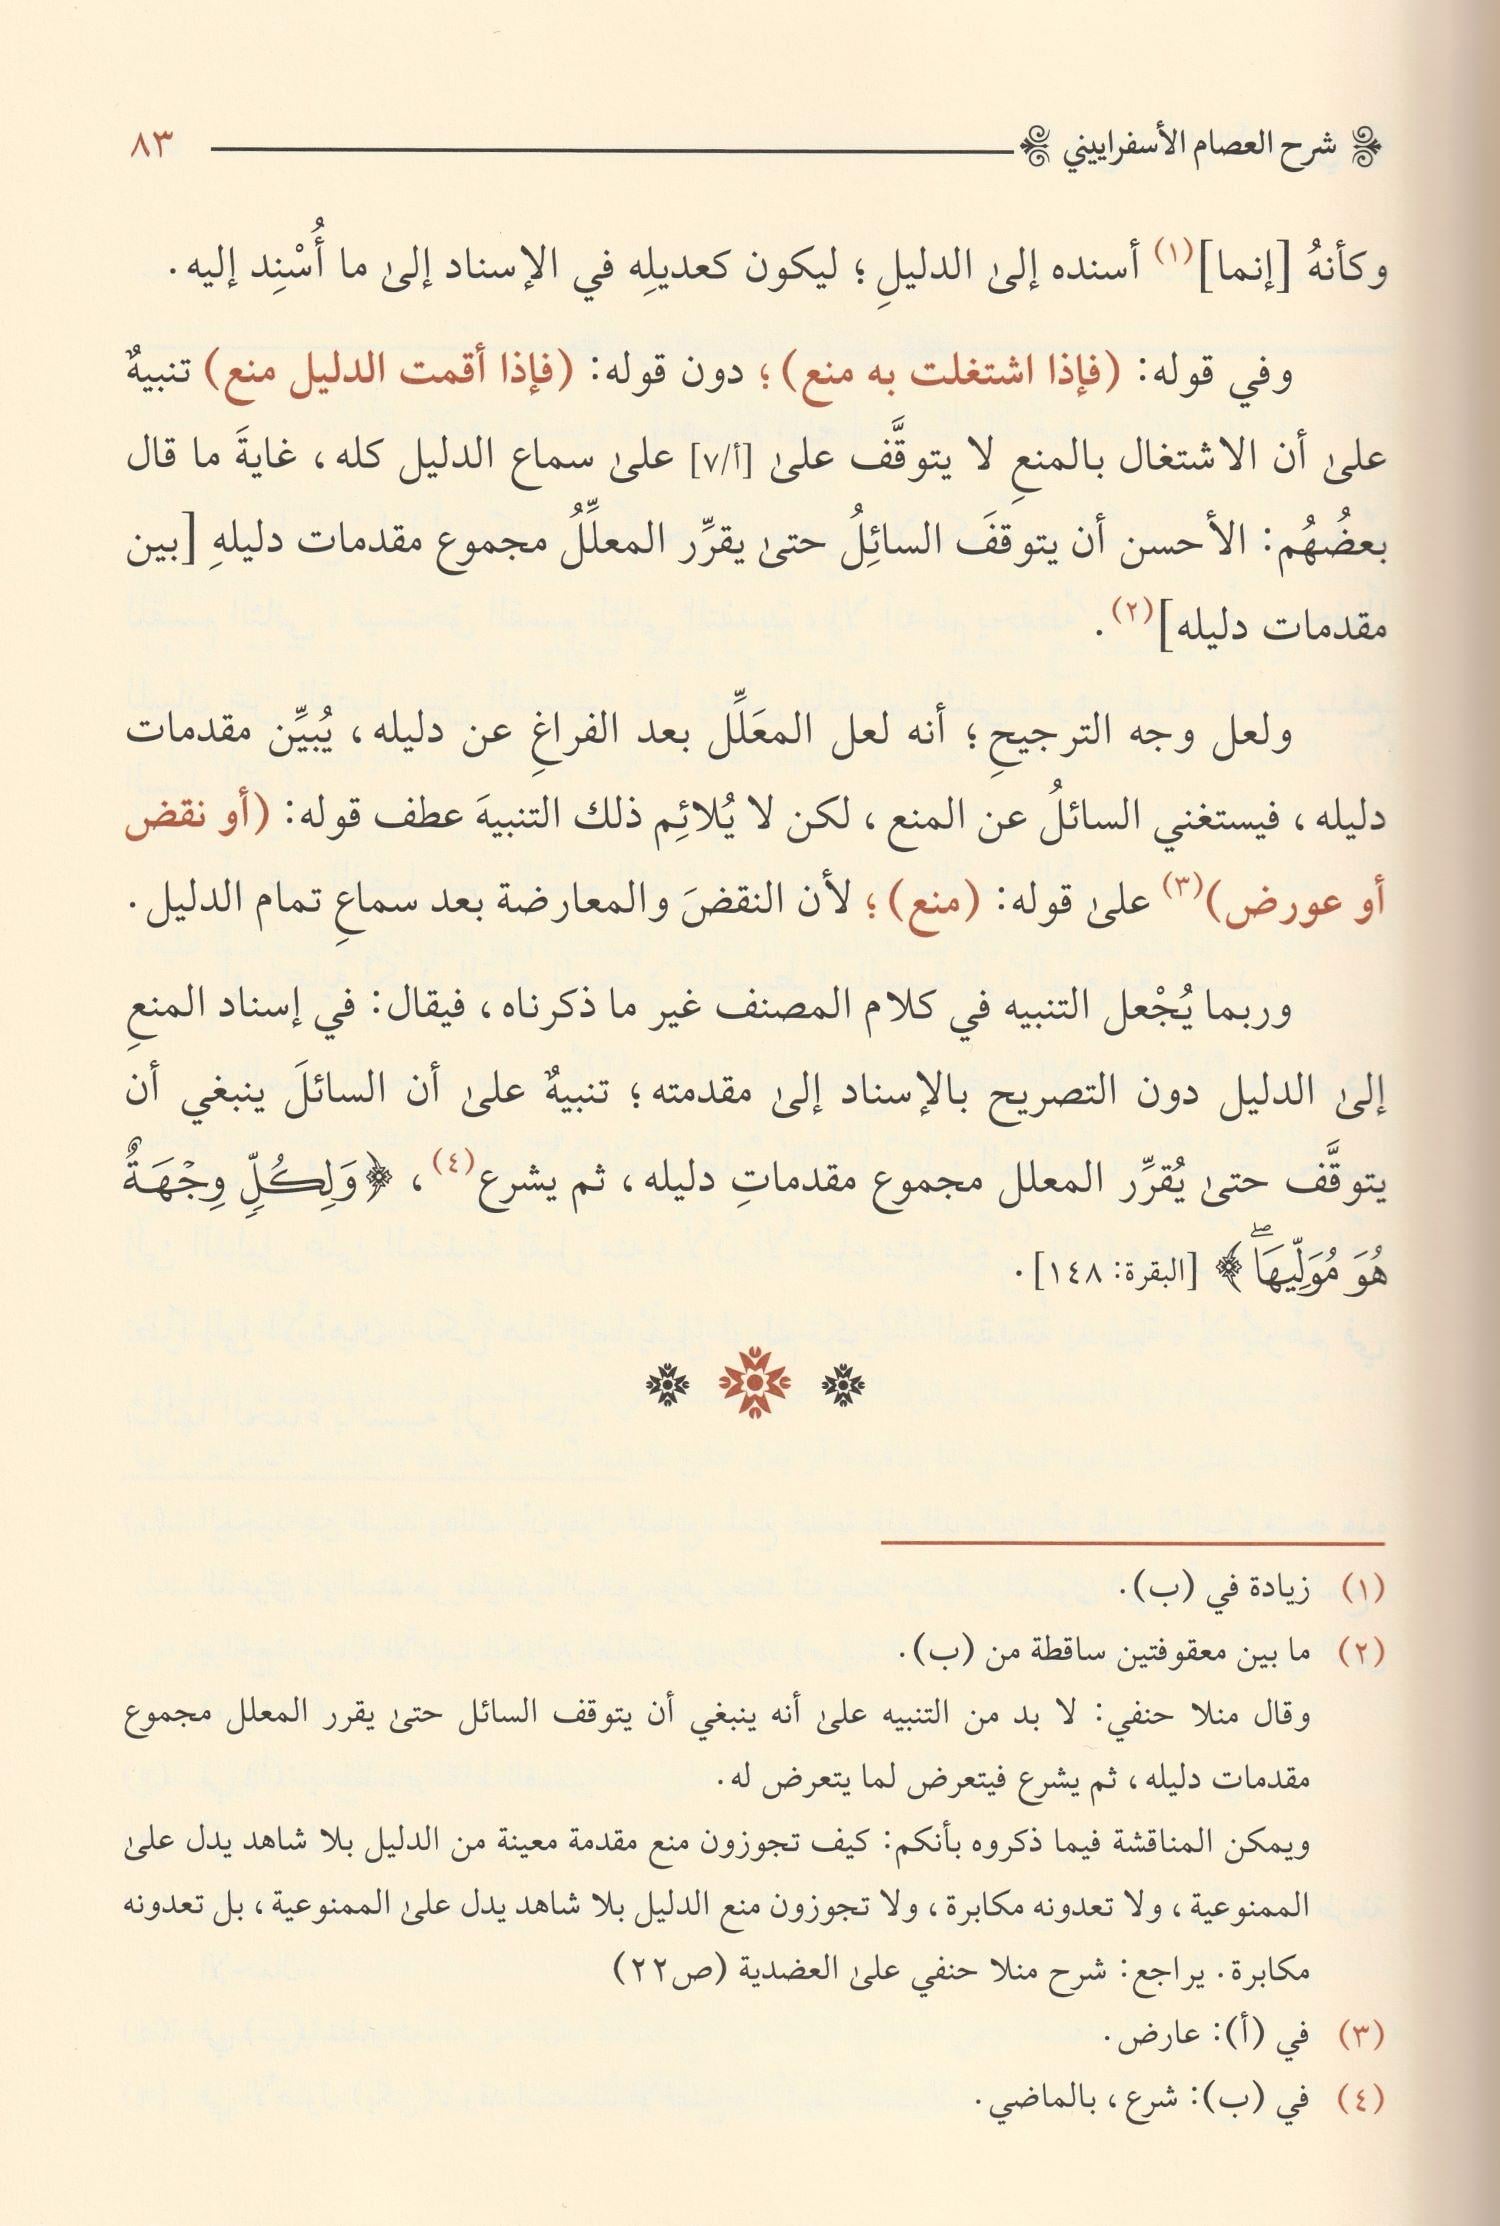 شرح العصام الأسفراييني ٨٣
وكأنهُ [إنما](١) أسنده إلىٰ الدليلِ؛ ليكون كعديلِه في الإسناد إلىٰ ما أُسْنِد إليه.
وفي قوله: (فإذا اشتغلت به منع)؛ دون قوله: (فإذا أقمت الدليل منع) تنبيهٌ
علىٰ أن الاشتغال بالمنعِ لا يتوقَّف علىٰ [٧/أ] علىٰ سماع الدليل كله، غايةَ ما قال
بعضُهُم: الأحسن أن يتوقفَ السائِلُ حتىٰ يقرِّر المعلِّلُ مجموع مقدمات دليلهِ [بين
مقدمات دليله](٢).
ولعل وجه الترجيحِ؛ أنه لعل المعَلِّل بعد الفراغِ عن دليله، يُبيِّن مقدمات
دليله، فيستغني السائلُ عن المنع، لكن لا يُلائِم ذلك التنبيهَ عطف قوله: (أو نقض
أو عورض)(٣) علىٰ قوله: (منع)؛ لأن النقضَ والمعارضة بعد سماعِ تمام الدليل.
وربما يُجْعل التنبيه في كلام المصنف غير ما ذكرناه، فيقال: في إسناد المنعِ
إلىٰ الدليل دون التصريح بالإسناد إلىٰ مقدمته؛ تنبيهٌ علىٰ أن السائلَ ينبغي أن
يتوقَّف حتىٰ يُقرِّر المعلل مجموع مقدماتِ دليله، ثم يشرع(٤)، ﴿وَلِكُلٍّ وِجْهَةٌ
هُوَ مُوَلِّيهَاۖ﴾ [البقرة: ١٤٨].
(١) زيادة في (ب).
(٢) ما بين معقوفتين ساقطة من (ب).
وقال منلا حنفي: لا بد من التنبيه علىٰ أنه ينبغي أن يتوقف السائل حتىٰ يقرر المعلل مجموع
مقدمات دليله، ثم يشرع فيتعرض لما يتعرض له.
ويمكن المناقشة فيما ذكروه بأنكم: كيف تجوزون منع مقدمة معينة من الدليل بلا شاهد يدل علىٰ
الممنوعية، ولا تعدونه مكابرة، ولا تجوزون منع الدليل بلا شاهد يدل علىٰ الممنوعية، بل تعدونه
مكابرة. يراجع: شرح منلا حنفي علىٰ العضدية (ص٢٢)
(٣) في (أ): عارض.
(٤) في (ب): شرع، بالماضي.